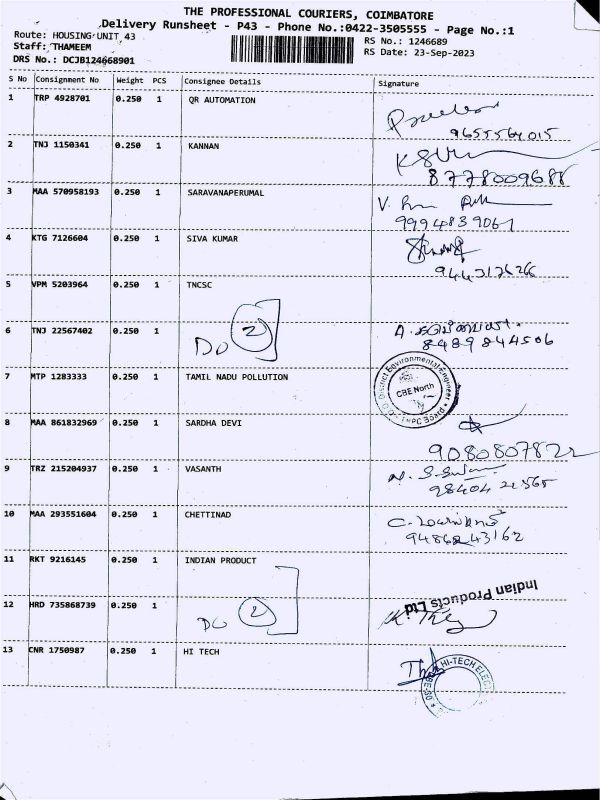 THE PROFESSIONAL COURIERS, COIMBATORE
Delivery Runsheet - P43 - Phone No.:0422-3505555 - Page No.:1
Route: HOUSING UNIT 43
Staff: THAMEEM
DRS No.: DCJB124668901
RS No.: 1246689
RS Date: 23-Sep-2023
S No Consignment No Weight PCS Consignee Details Signature
1 TRP 4928701 0.250 1 QR AUTOMATION
9655564015
2 TNJ 1150341 0.250 1 KANNAN
8778009688
3 MAA 570958193 0.250 1 SARAVANAPERUMAL
9994839061
4 KTG 7126604 0.250 1 SIVA KUMAR
9443126266
5 VPM 5203964 0.250 1 TNCSC
6 TNJ 22567402 0.250 1 Do 2
8489844506
7 MTP 1283333 0.250 1 TAMIL NADU POLLUTION
District Environmental Engineer
CBE North
8 MAA 861832969 0.250 1 SARDHA DEVI
9080807822
9 TRZ 215204937 0.250 1 VASANTH
10 MAA 293551604 0.250 1 CHETTINAD
11 RKT 9216145 0.250 1 INDIAN PRODUCT
Indian Products Ltd
12 HRD 735868739 0.250 1 Do 2
13 CNR 1750987 0.250 1 HI TECH
HI-TECH